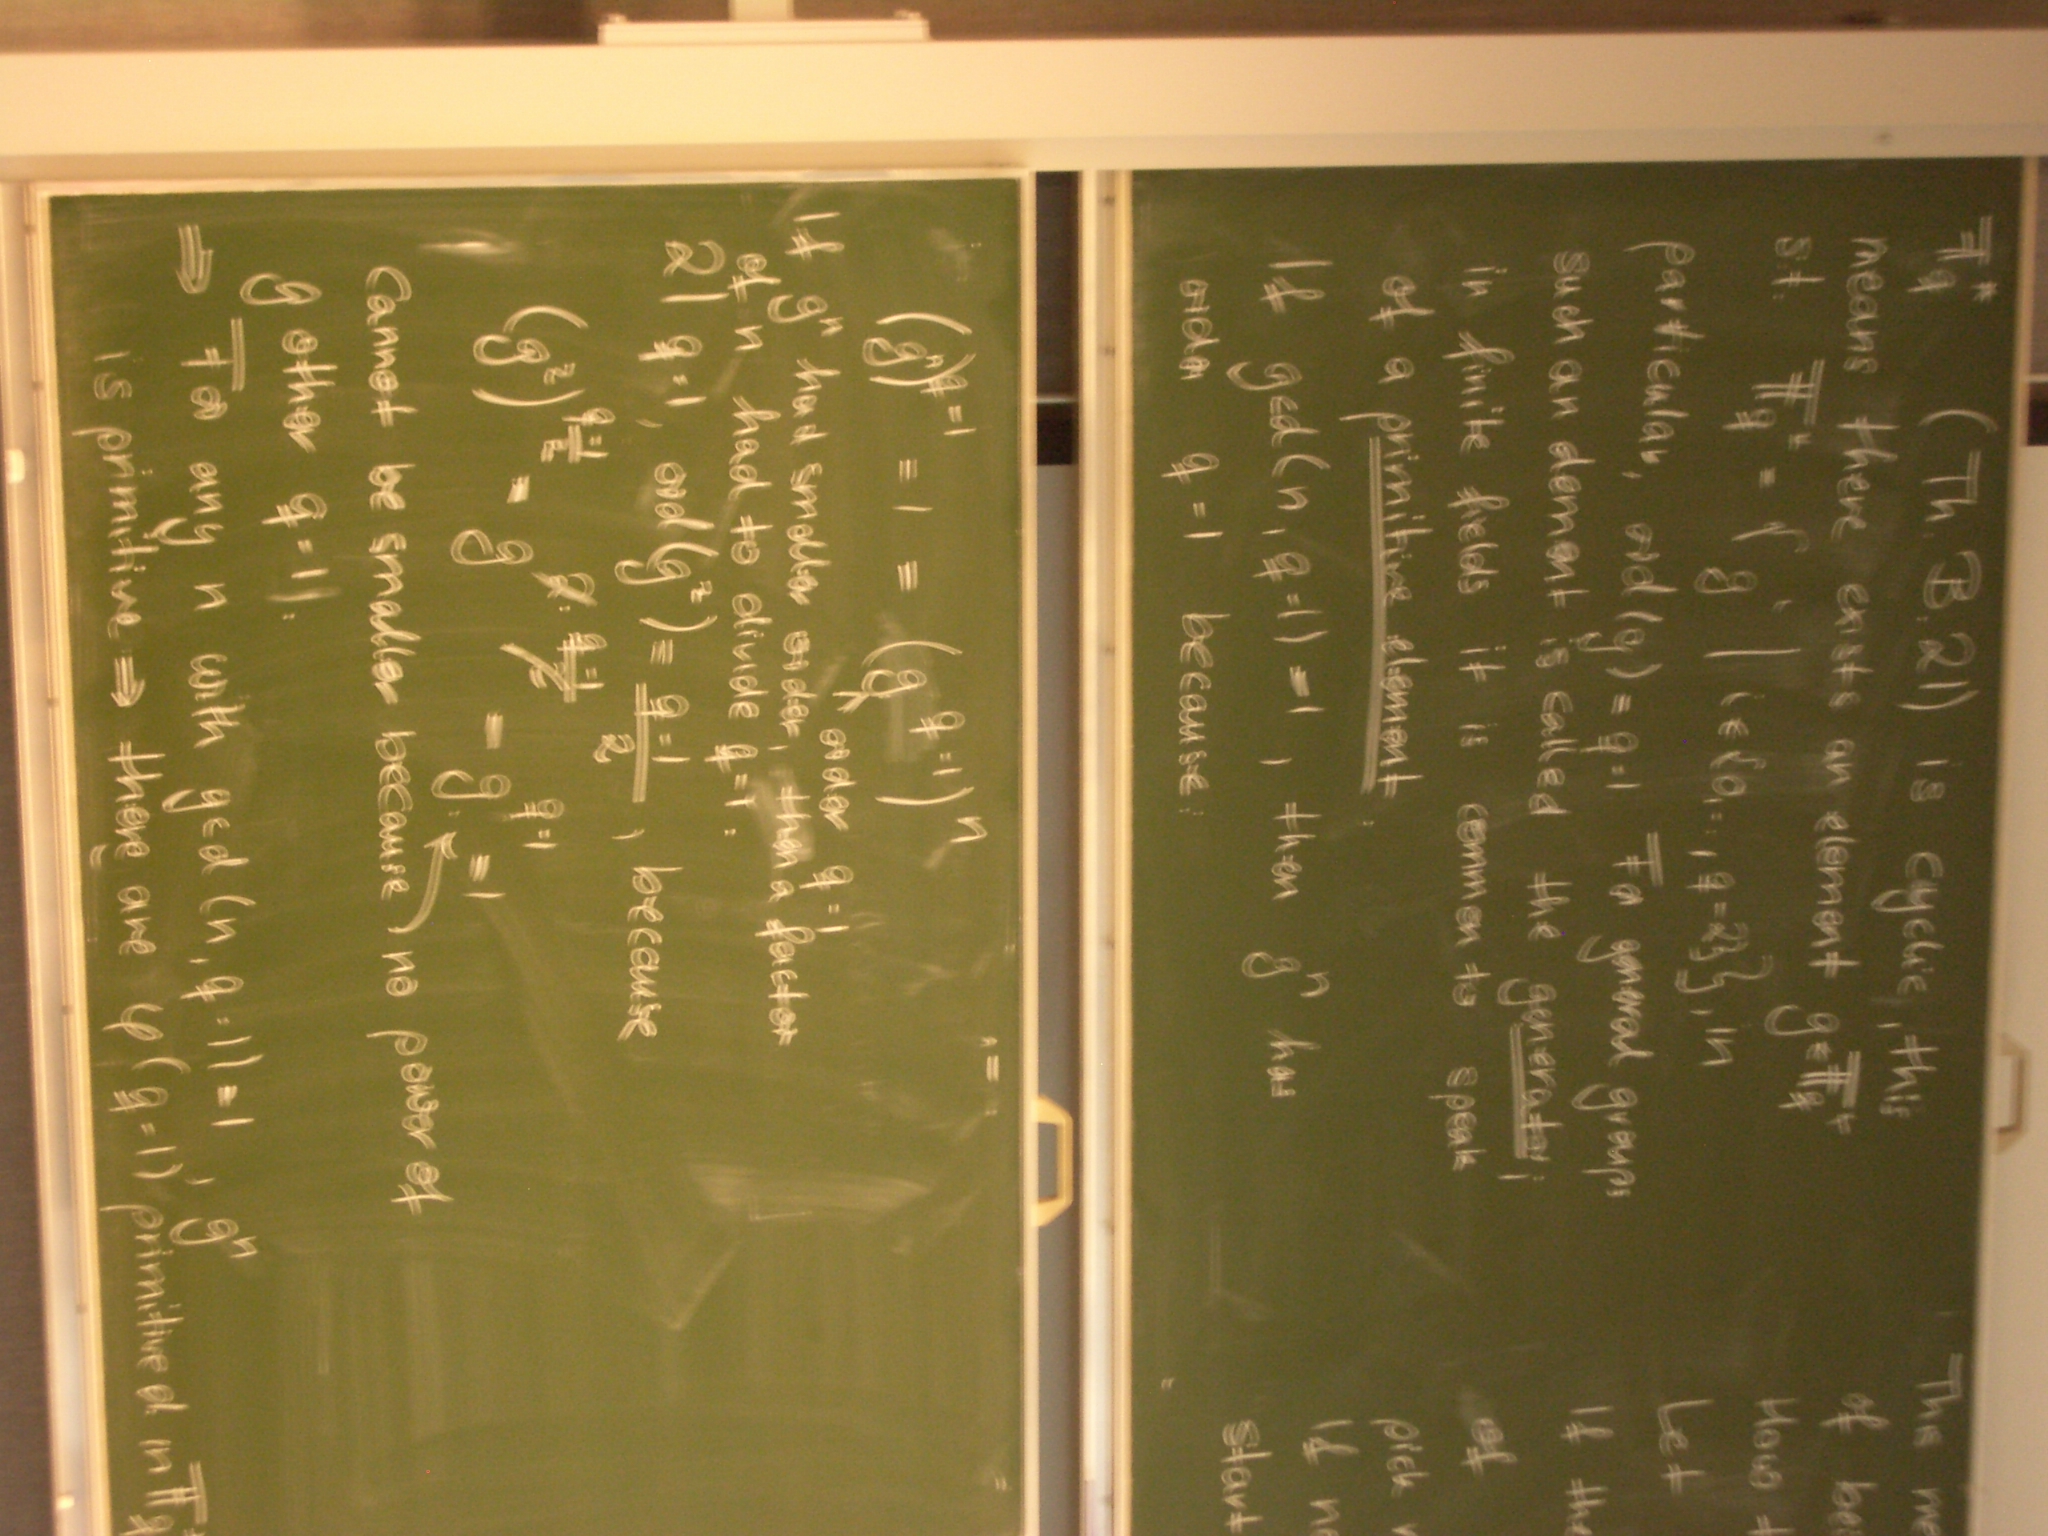 F_q^* (Th. B. 21) is cyclic, this
means there exists an element g ∈ F_q^*
st. F_q^* = { g^i | i ∈ {0,..., q-2}}, in
particular, ord(g) = q-1 For general groups
such an element is called the generator;
in finite fields it is common to speak
of a primitive element.
If gcd(n, q-1) = 1, then g^n has
order q-1 because:
(g^n)^{q-1} = 1 = (g^{q-1})^n
If g^n had smaller order, then a factor
of n had to divide q-1.
2 | q-1, ord(g^2) = (q-1)/2, because
(g^2)^{(q-1)/2} = g^{2·(q-1)/2} = g^{q-1} = 1
cannot be smaller because no power of
g other q-1.
⇒ For any n with gcd(n, q-1) = 1, g^n
is primitive ⇒ there are φ(q-1) primitive el. in F_q^*
order q-1
This
of
How
Let
If the
of
pick
If
start